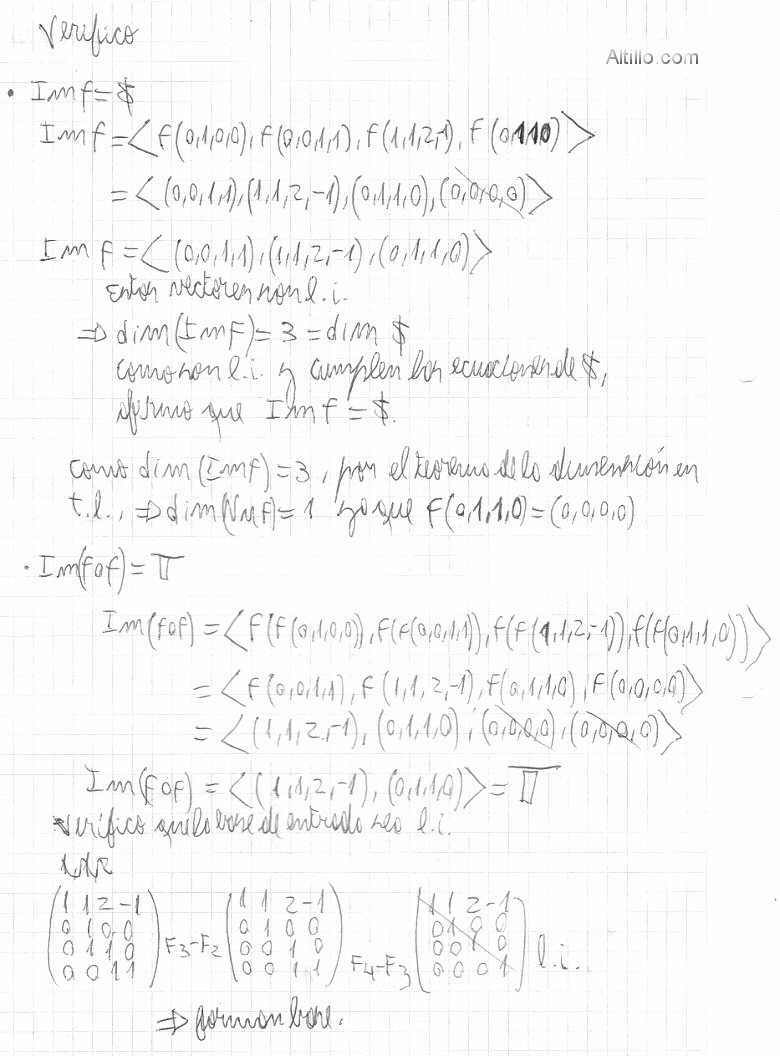 Verifico
Altillo.com
• Im f = $
Im f = <f(0,1,0,0), f(0,0,1,1), f(1,1,2,-1), f(0,1,1,0)>
= <(0,0,1,1), (1,1,2,-1), (0,1,1,0), (0,0,0,0)>
Im f = <(0,0,1,1), (1,1,2,-1), (0,1,1,0)>
Estos vectores son l.i.
⇒ dim(Imf) = 3 = dim $
como son l.i. y cumplen las ecuaciones de $,
afirmo que Im f = $.
como dim (Imf) = 3, por el teorema de la dimensión en
t.l., ⇒ dim(Nuf) = 1 ya que f(0,1,1,0) = (0,0,0,0)
• Im(fof) = π
Im(fof) = <f(f(0,1,0,0)), f(f(0,0,1,1)), f(f(1,1,2,-1)), f(f(0,1,1,0))>
= <f(0,0,1,1), f(1,1,2,-1), f(0,1,1,0), f(0,0,0,0)>
= <(1,1,2,-1), (0,1,1,0), (0,0,0,0), (0,0,0,0)>
Im(fof) = <(1,1,2,-1), (0,1,1,0)> = π
Verifico que la base de entrada sea l.i.
1 1 2 -1 1 1 2 -1 1 1 2 -1
0 1 0 0 0 1 0 0 0 1 0 0
0 1 1 0 F3-F2 0 0 1 0 0 0 1 0 l.i.
0 0 1 1 0 0 1 1 F4-F3 0 0 0 1
⇒ forman base.